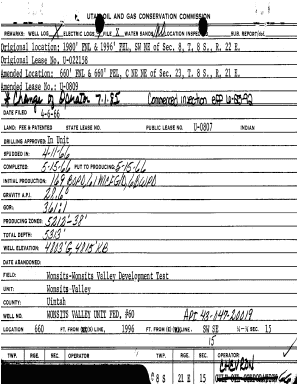 UTAH OIL AND GAS CONSERVATION COMMISSION
REMARKS: WELL LOG ELECTRIC LOGS X FILE X WATER SANDS LOCATION INSPECTED SUB. REPORT/abd.
Original location: 1980' FNL & 1996' FEL, SW NE of Sec. 8, T. 8 S., R. 22 E.
Original Lease No. U-022158
Amended Location: 660' FNL & 660' FEL, C NE NE of Sec. 23, T. 8 S., R. 21 E.
Amended Lease No.: U-0809
* Change of Operator 7-1-85 Commenced injection eff
DATE FILED 4-6-66
LAND: FEE & PATENTED STATE LEASE NO. PUBLIC LEASE NO. U-0807 INDIAN
DRILLING APPROVED: In Unit
SPUDDED IN: 4-11-66
COMPLETED: 5-15-66 PUT TO PRODUCING: 5-15-66
INITIAL PRODUCTION: 169 BOPD, 61 MCFG/D,
GRAVITY A.P.I. 28.6°
GOR: 361:1
PRODUCING ZONES: 5212-38'
TOTAL DEPTH: 5313'
WELL ELEVATION: 4803'G, 4815'KB
DATE ABANDONED:
FIELD: Wonsits-Wonsits Valley Development Test
UNIT: Wonsits Valley
COUNTY: Uintah
WELL NO. WONSITS VALLEY UNIT FED, #60 API 43-047-20019
LOCATION 660 FT. FROM (S) LINE, 1996 FT. FROM (E) LINE. SW SE ¼-¼ SEC. 15
15
TWP. RGE. SEC. OPERATOR TWP. RGE. SEC. OPERATOR
CHEVRON
8 S 21 E 15 GULF OIL CORPORATION